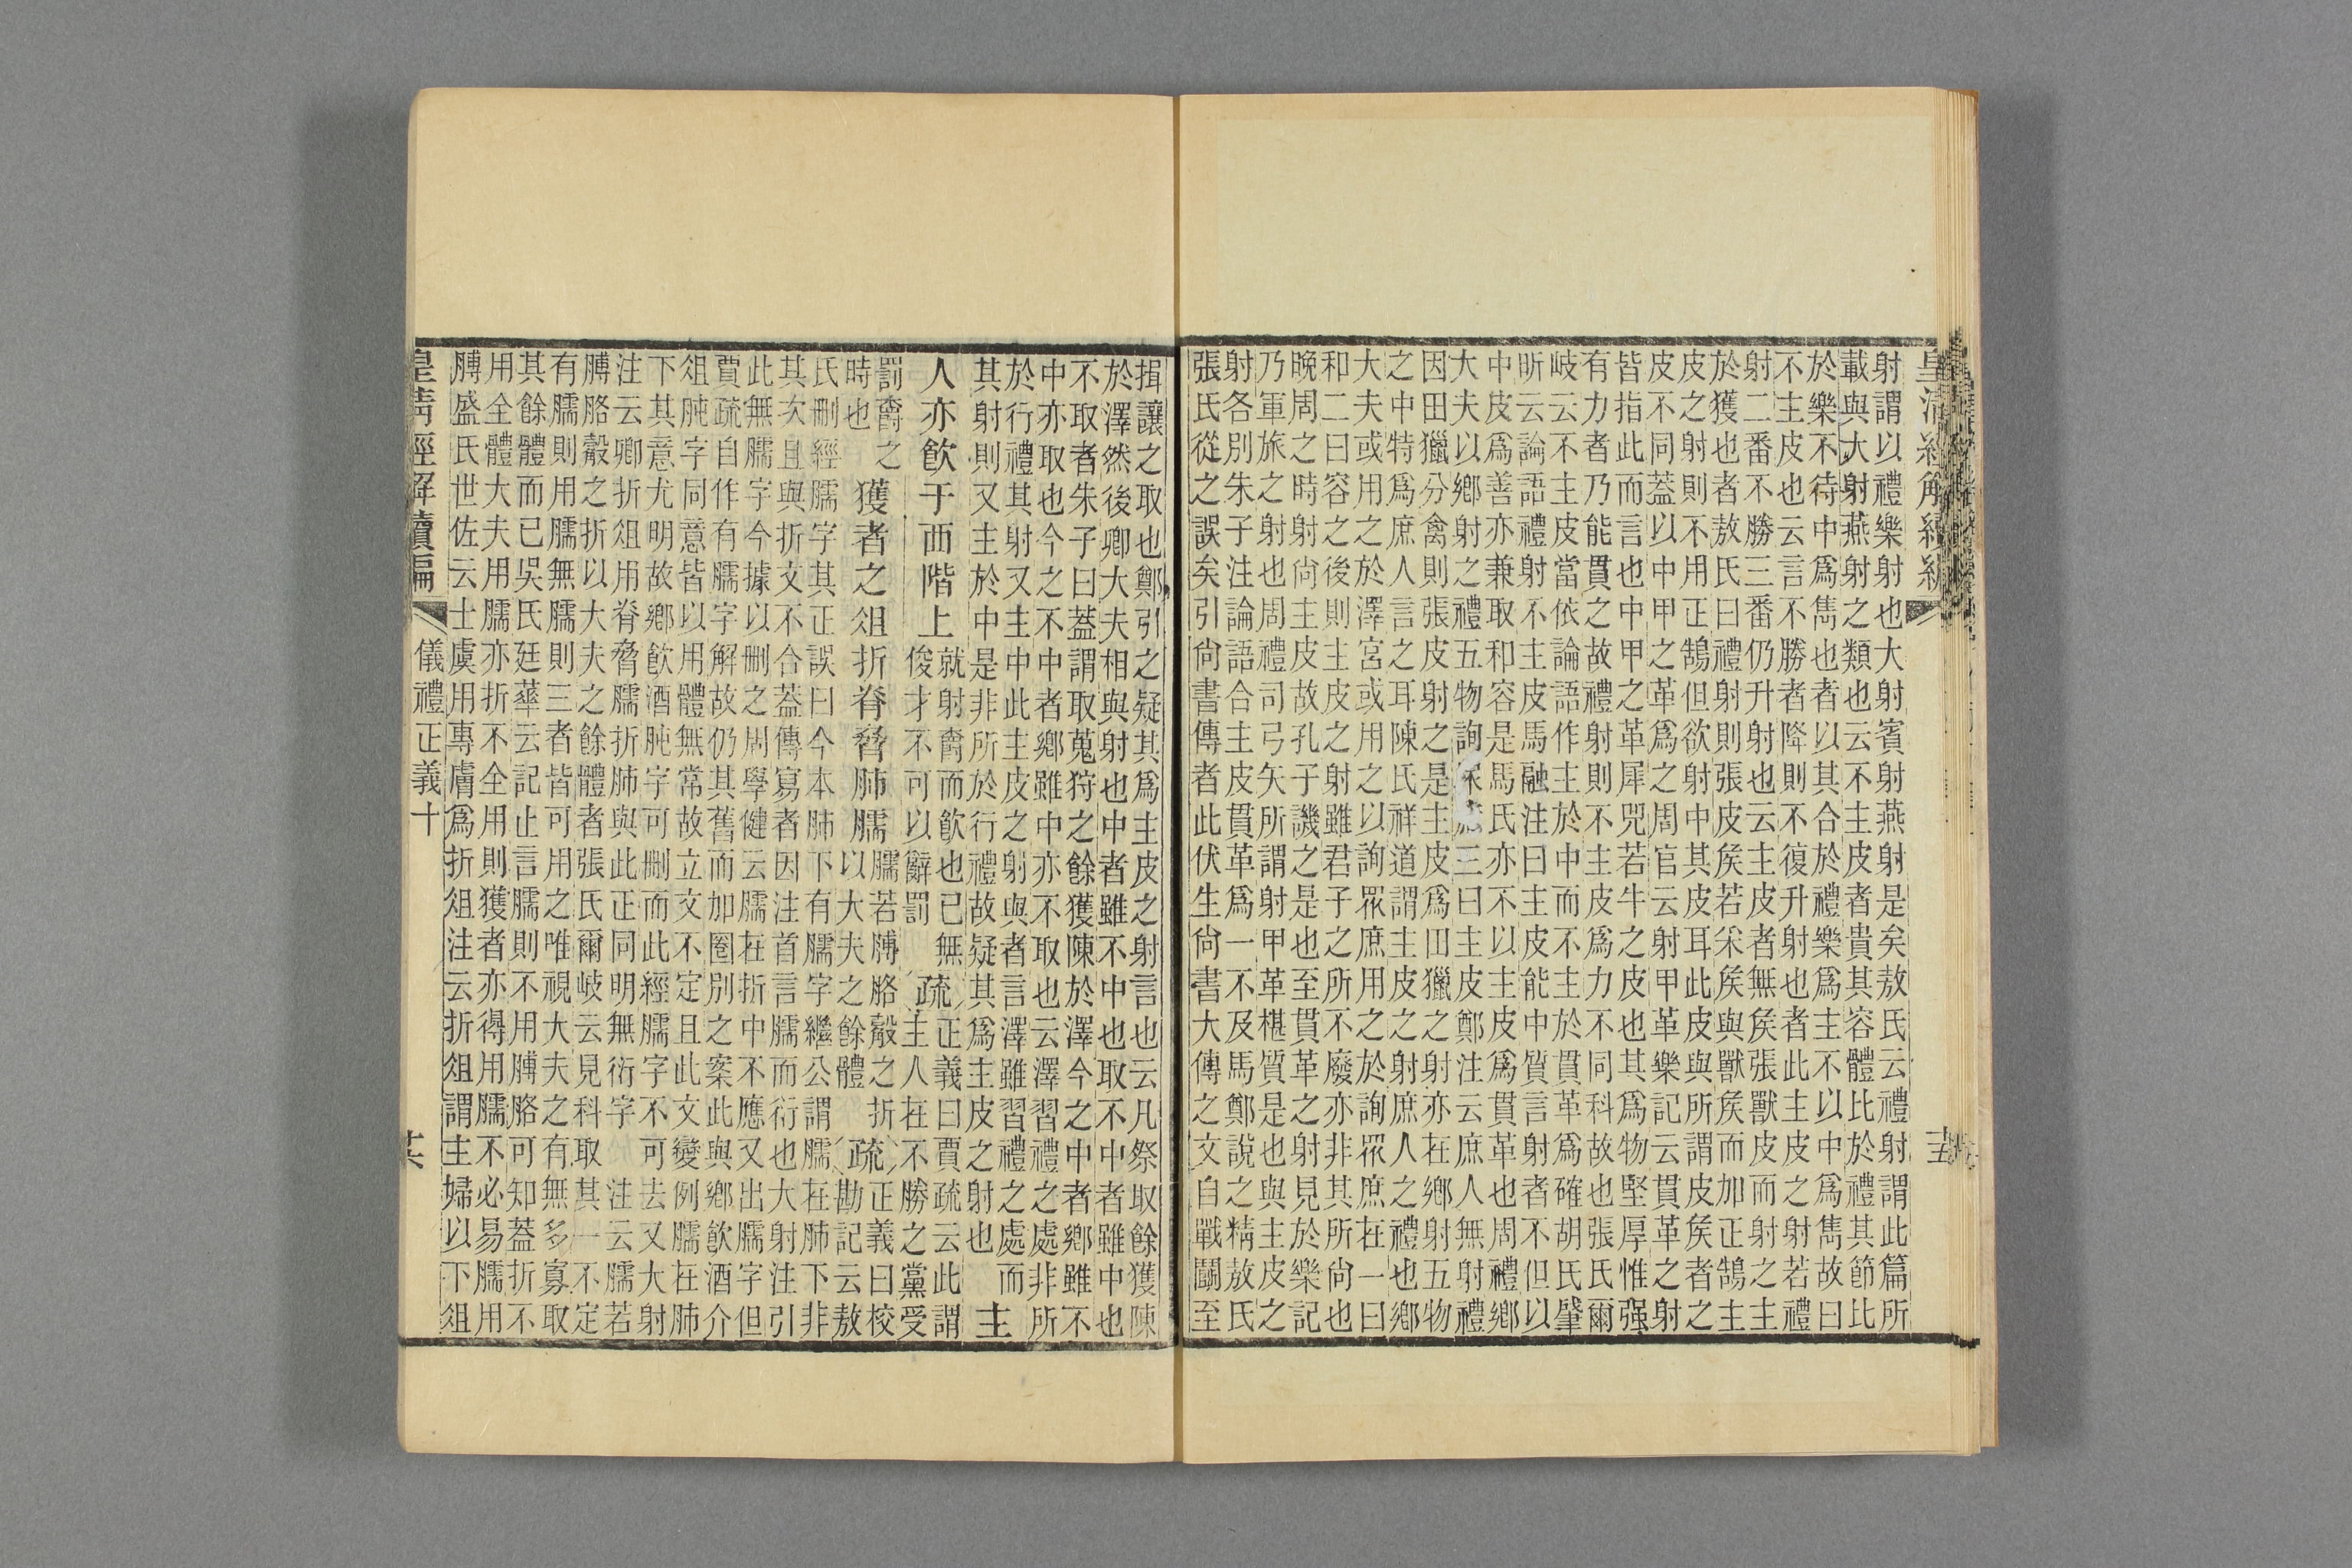 射謂以禮樂射也大射賓射燕射是矣敖氏云禮射謂此篇所
載與大射燕射之類也云不主皮者貴其容體比於禮其節比
於樂不待中爲雋也者以其合於禮樂爲主不以中爲雋故曰
不主皮也云言不勝者降則不復升射也者此主皮之射若禮
射二番不勝三番仍升射也云主皮者無矦張獸皮而射之主
於獲也者敖氏曰禮射則張皮矦若采矦與獸矦而加正鵠主
皮之射則不用正鵠但欲射中其皮耳此皮與所謂皮矦者之
皮不同蓋以中甲之革爲之周官云射甲革樂記云貫革之射
皆指此而言也中甲之革犀兕若牛之皮也其爲物堅厚惟强
有力者乃能貫之故禮射則不主皮爲力不同科故也張氏爾
岐云不主皮當依論語作主於中而不主於貫革爲確胡氏肇
昕云論語禮射不主皮馬融注曰主皮能中質言射者不但以
中皮爲善亦兼取和容是馬氏亦不以主皮爲貫革也周禮鄉
大夫以鄉射之禮五物詢三曰主皮鄭注云庶人無射禮
因田獵分禽則張皮射之是主皮爲田獵之射亦在鄉射五物
之中特爲庶人言之耳陳氏祥道謂主皮之射庶人之禮也鄉
大夫或用之於澤宮或用之以詢眾庶用之於詢眾庶在一曰
和二曰容之後則主皮之射雖君子之所不廢亦非其所尙也
晚周之時射尙主皮故孔子譏之是也至貫革之射見於樂記
乃軍旅之射也周禮司弓矢所謂射甲革椹質是也與主皮之
射各別朱子注論語合主皮貫革爲一不及馬鄭說之精敖氏
張氏從之誤矣引尙書傳者此伏生尙書大傳之文自戰鬭至
揖讓之取也鄭引之疑其爲主皮之射言也云凡祭取餘獲陳
於澤然後卿大夫相與射也中者雖不中也取不中者雖中也
不取者朱子曰蓋謂取蒐狩之餘獲陳於澤今之中者鄉雖不
中亦取也今之不中者鄉雖中亦不取也云澤習禮之處非所
於行禮其射又主中此主皮之射與者言澤雖習禮之處而
其射則又主於中是非所於行禮故疑其爲主皮之射也主
人亦飮于西階上就射爵而飮也已無俊才不可以辭罰疏正義曰賈疏云此謂
主人在不勝之黨受
罰爵之時也獲者之俎折脊脅肺臑臑若膊胳觳之折以大夫之餘體疏正義曰校勘記云敖
氏刪經臑字其正誤曰今本肺下有臑字繼公謂臑在肺下非
其次且與折文不合蓋傳寫者因注首言臑而衍也大射注引
此無臑字今據以刪之周學健云臑在折中不應又出臑字但
賈疏自作有臑字解故仍其舊而加圈別之案此與鄉飮酒介
俎肫字同意皆以用體無常故立文不定且此文變例臑在肺
下其意尤明故鄉飮酒肫字可刪而此經臑字不可去又大射
注云卿折俎用脊脅臑折肺與此正同明無衍字注云臑若
膊胳觳之折以大夫之餘體者張氏爾岐云見科取其一不定
有臑則用臑無臑則三者皆可用之唯視大夫之有無多寡取
其餘體而已吳氏廷華云記止言臑則不用膊胳可知蓋折不
用全體大夫用臑亦折不全用則獲者亦得用臑不必易臑用
膊盛氏世佐云士虞用專膚爲折俎注云折俎謂主婦以下俎
皇淸經解續編
儀禮正義十